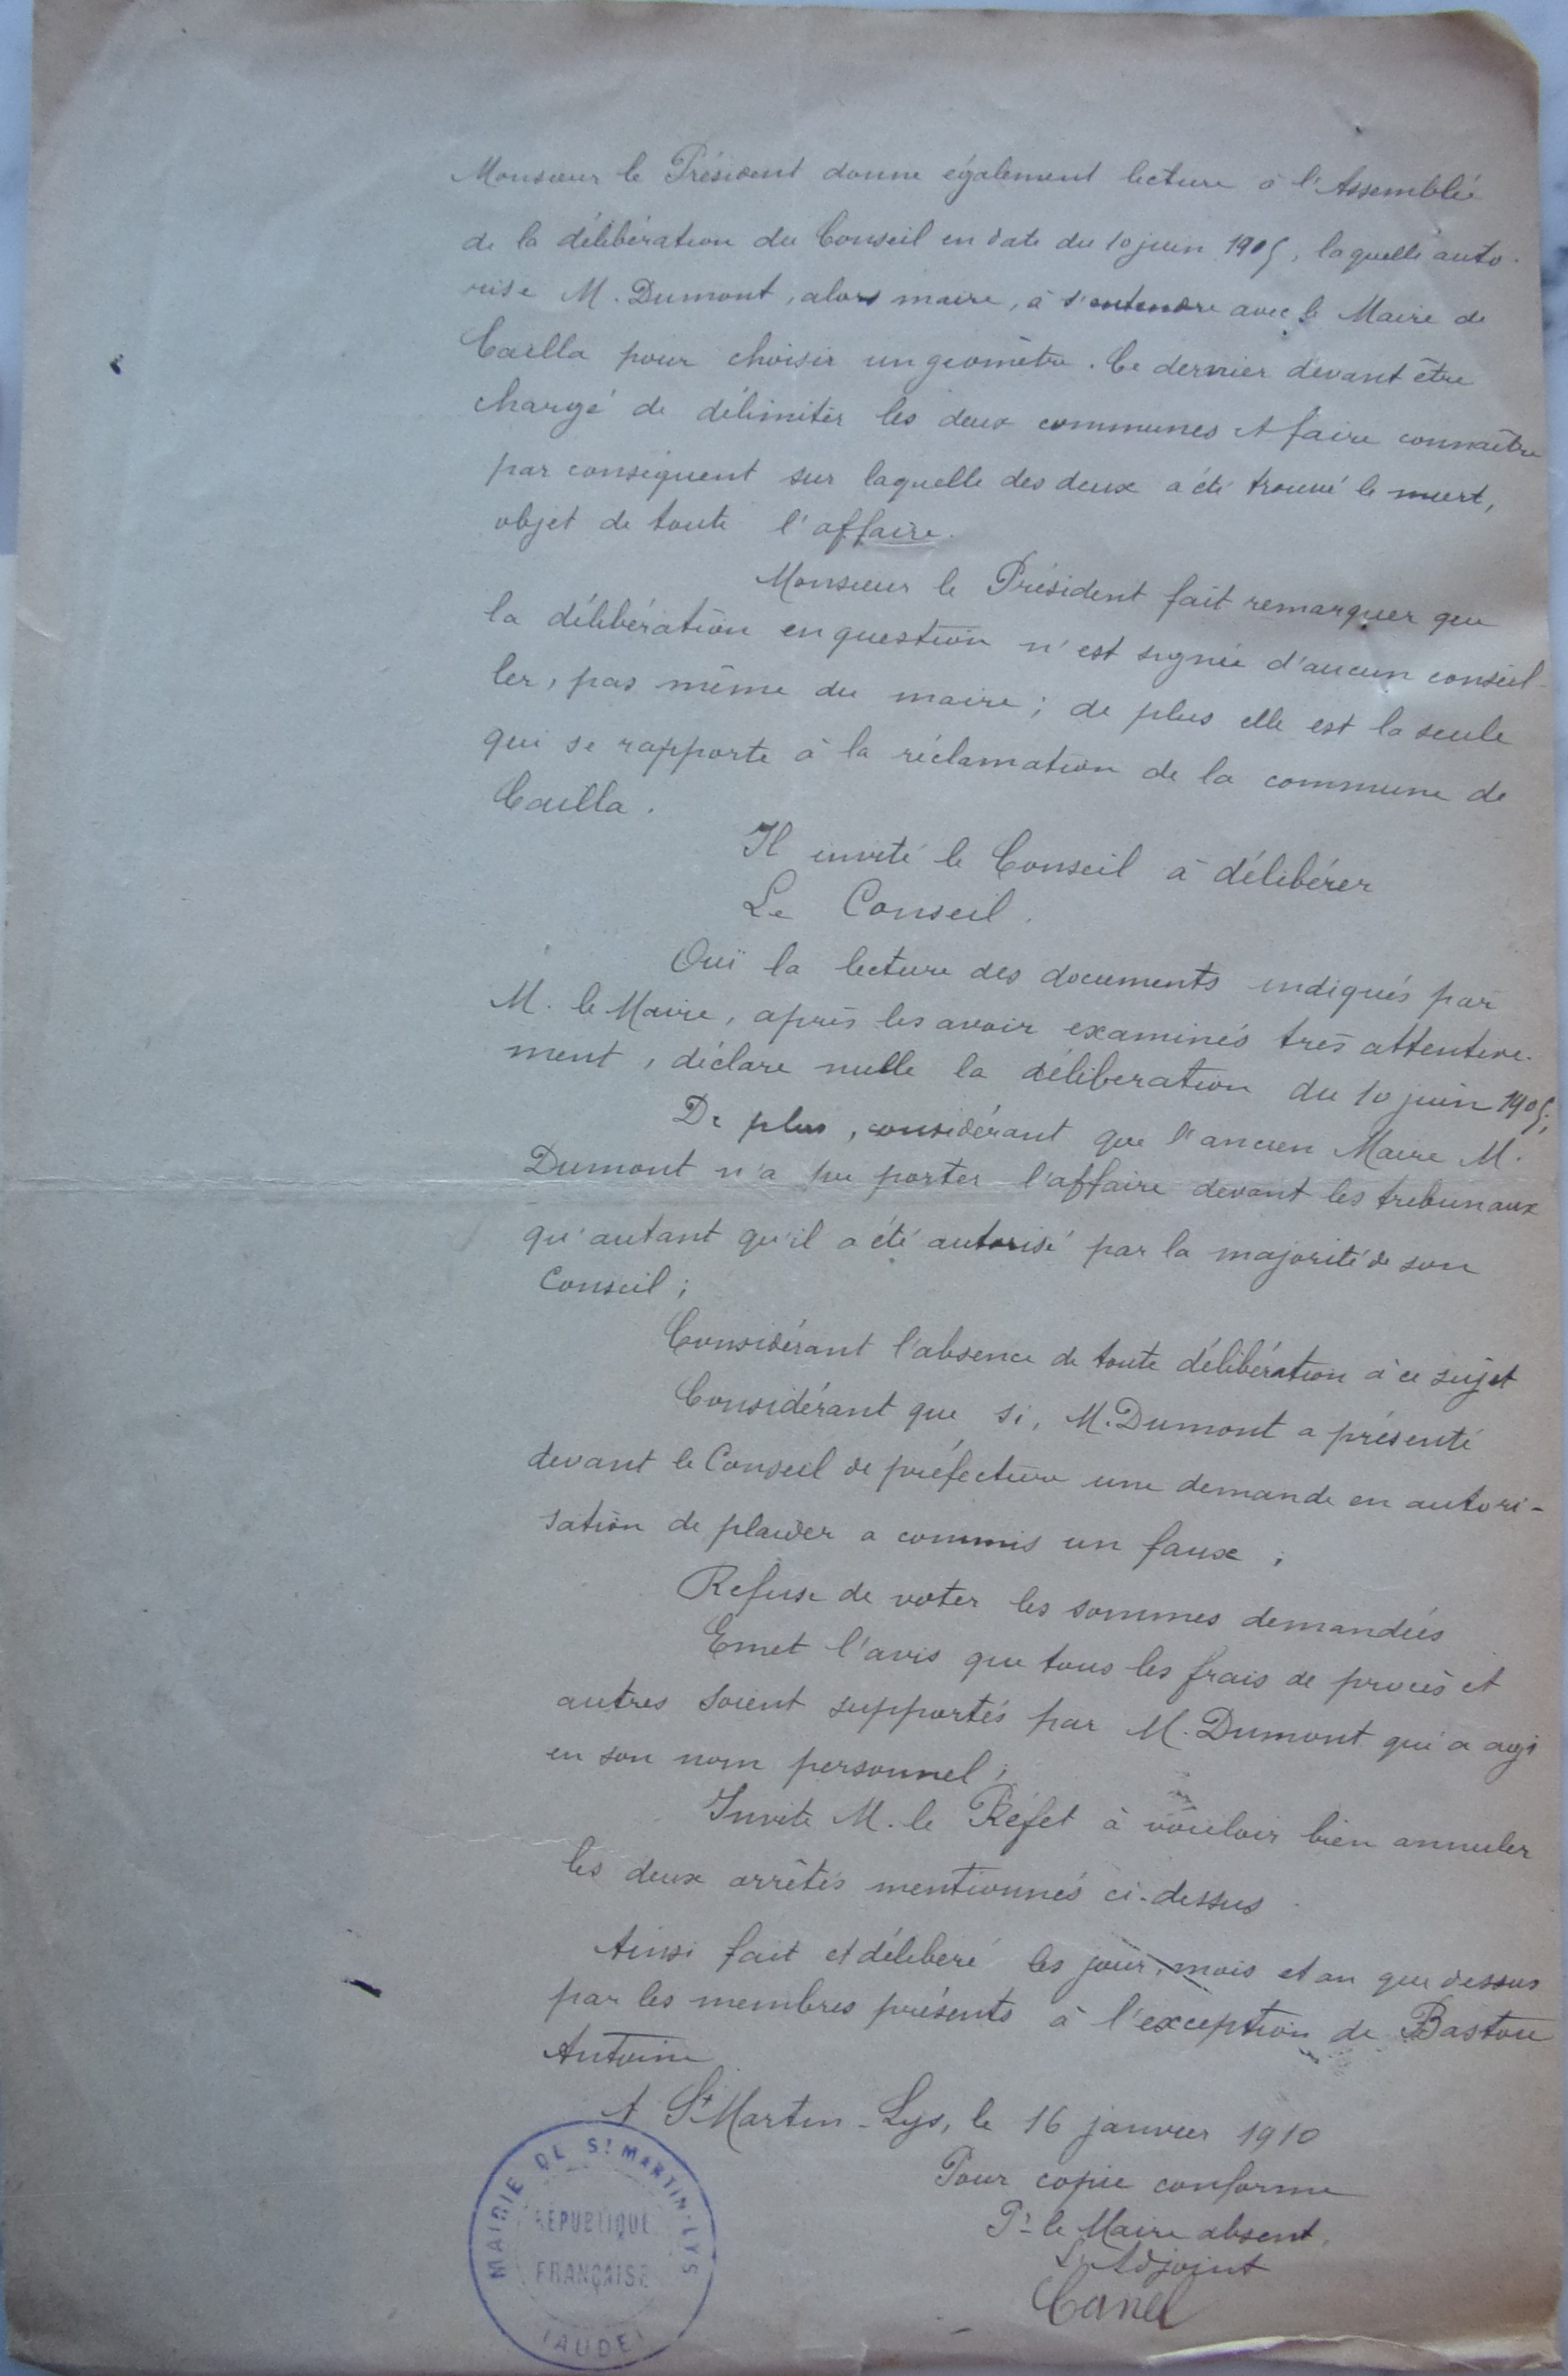 Monsieur le Président donne également lecture à l'Assemblée
de la délibération du Conseil en date du 10 juin 1905, laquelle auto-
rise M. Dumont, alors maire, à s'entendre avec le Maire de
Cailla pour choisir un geomètre. Ce dernier devant être
chargé de délimiter les deux communes et faire connaître
par conséquent sur laquelle des deux a été trouvé le mort,
objet de toute l'affaire.
Monsieur le Président fait remarquer que
la délibération en question n'est signée d'aucun conseil-
ler, pas même du maire ; de plus elle est la seule
qui se rapporte à la réclamation de la commune de
Cailla.
Il invite le Conseil à délibérer
Le Conseil.
Ouï la lecture des documents indiqués par
M. le Maire, après les avoir examinés très attentive-
ment, déclare nulle la déliberation du 10 juin 1905;
De plus, considérant que l'ancien Maire M.
Dumont n'a pu porter l'affaire devant les tribunaux
qu'autant qu'il a été autorisé par la majorité de son
Conseil ;
Considérant l'absence de toute délibération à ce sujet
Considérant que si, M. Dumont a présenté
devant le Conseil de préfecture une demande en autori-
sation de plaider a commis un faux ;
Refuse de voter les sommes demandées
Emet l'avis que tous les frais de procès et
autres soient supportés par M. Dumont qui a agi
en son nom personnel ;
Invite M. le Préfet à vouloir bien annuler
les deux arrêtés mentionnés ci-dessus
Ainsi fait et délibéré les jour, mois et an que dessus
par les membres présents à l'exception de Bastou
Antoine
A St Martin-Lys, le 16 janvier 1910
Pour copie conforme
Pr le Maire absent,
L'Adjoint
Canel
MAIRIE DE ST MARTIN-LYS
RÉPUBLIQUE
FRANÇAISE
(AUDE)